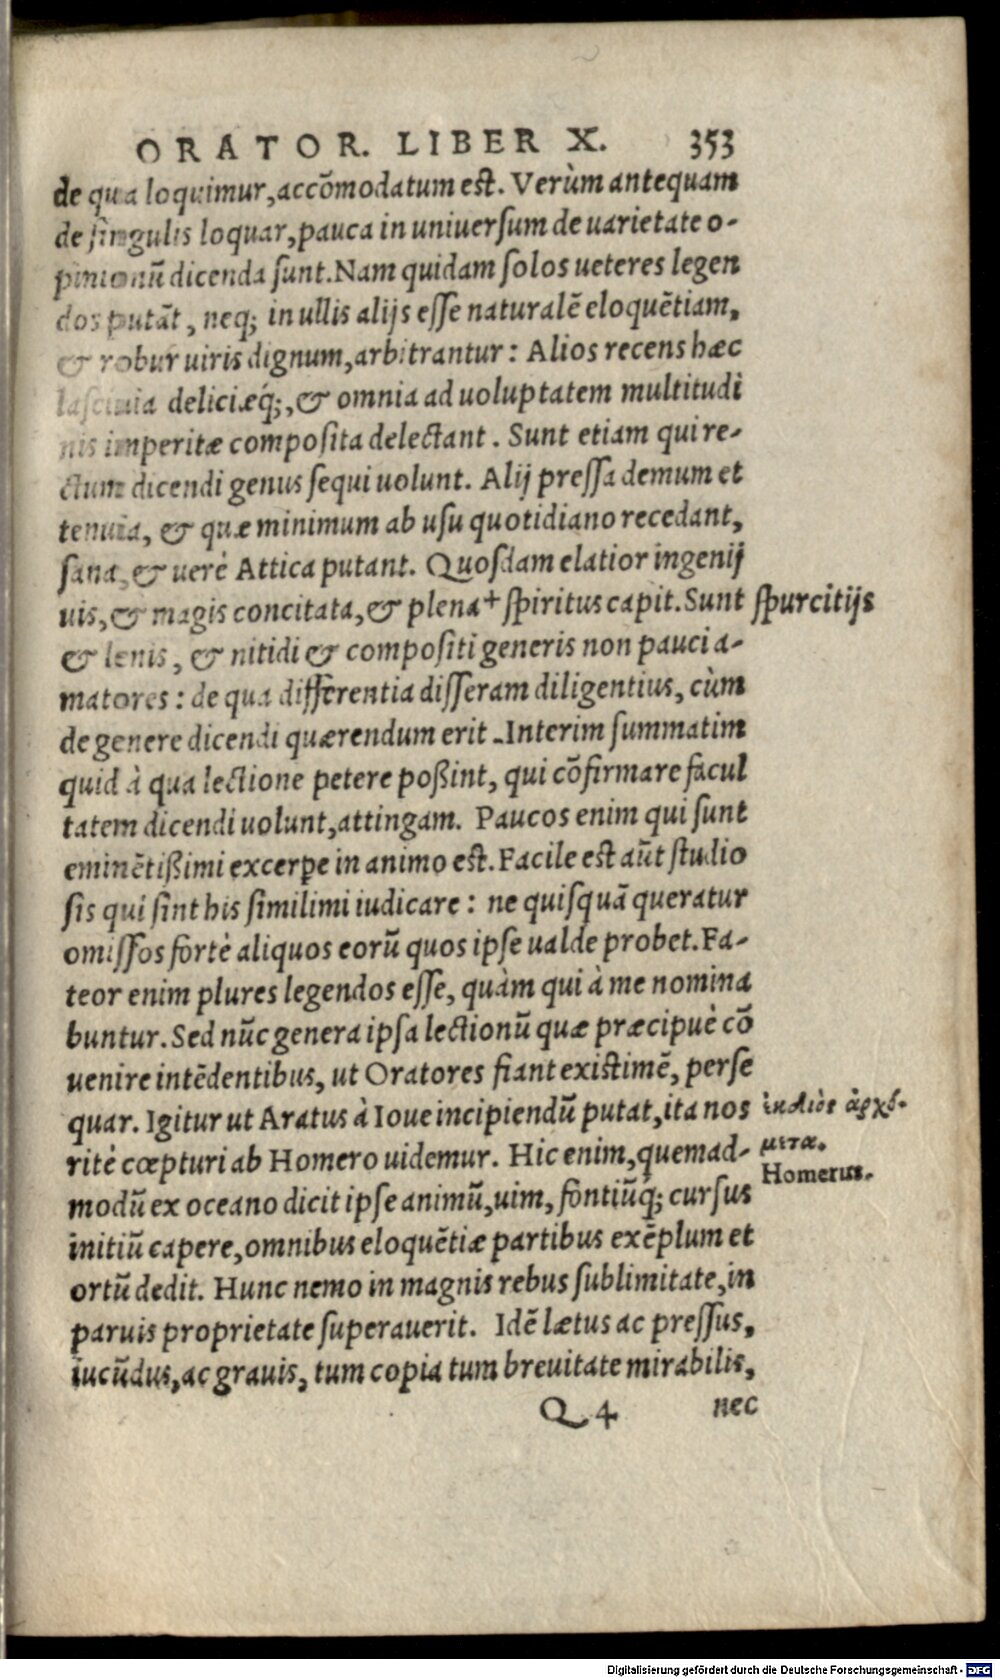 ORATOR. LIBER X. 353
de qua loquimur, accōmodatum est. Verùm antequam
de singulis loquar, pauca in uniuersum de uarietate o-
pinionū dicenda sunt. Nam quidam solos ueteres legen
dos putāt, neq; in ullis alijs esse naturalē eloquētiam,
& robur uiris dignum, arbitrantur: Alios recens hæc
lasciuia deliciæq́;, & omnia ad uoluptatem multitudi
nis imperitæ composita delectant. Sunt etiam qui re-
ctum dicendi genus sequi uolunt. Alij pressa demum et
tenuia, & quæ minimum ab usu quotidiano recedant,
sana, & uerè Attica putant. Quosdam elatior ingenij
uis, & magis concitata, & plena + spiritus capit. Sunt spurcitijs
& lenis, & nitidi & compositi generis non pauci a-
matores: de qua differentia disseram diligentius, cùm
de genere dicendi quærendum erit. Interim summatim
quid à qua lectione petere poßint, qui cōfirmare facul
tatem dicendi uolunt, attingam. Paucos enim qui sunt
eminētißimi excerpe in animo est. Facile est aūt studio
sis qui sint his similimi iudicare: ne quisquā queratur
omissos fortè aliquos eorū quos ipse ualde probet. Fa-
teor enim plures legendos esse, quàm qui à me nomina
buntur. Sed nūc genera ipsa lectionū quæ præcipuè cō
uenire intēdentibus, ut Oratores fiant existimē, perse
quar. Igitur ut Aratus à Ioue incipiendū putat, ita nos ἐκ διὸς ἀρχό-
ritè cœpturi ab Homero uidemur. Hic enim, quemad- μεσα.
Homerus.
modū ex oceano dicit ipse animū, uim, fontiūq́; cursus
initiū capere, omnibus eloquētiæ partibus exēplum et
ortū dedit. Hunc nemo in magnis rebus sublimitate, in
paruis proprietate superauerit. Idē lætus ac pressus,
iucūdus, ac grauis, tum copia tum breuitate mirabilis,
Q 4 nec
Digitalisierung gefördert durch die Deutsche Forschungsgemeinschaft - DFG